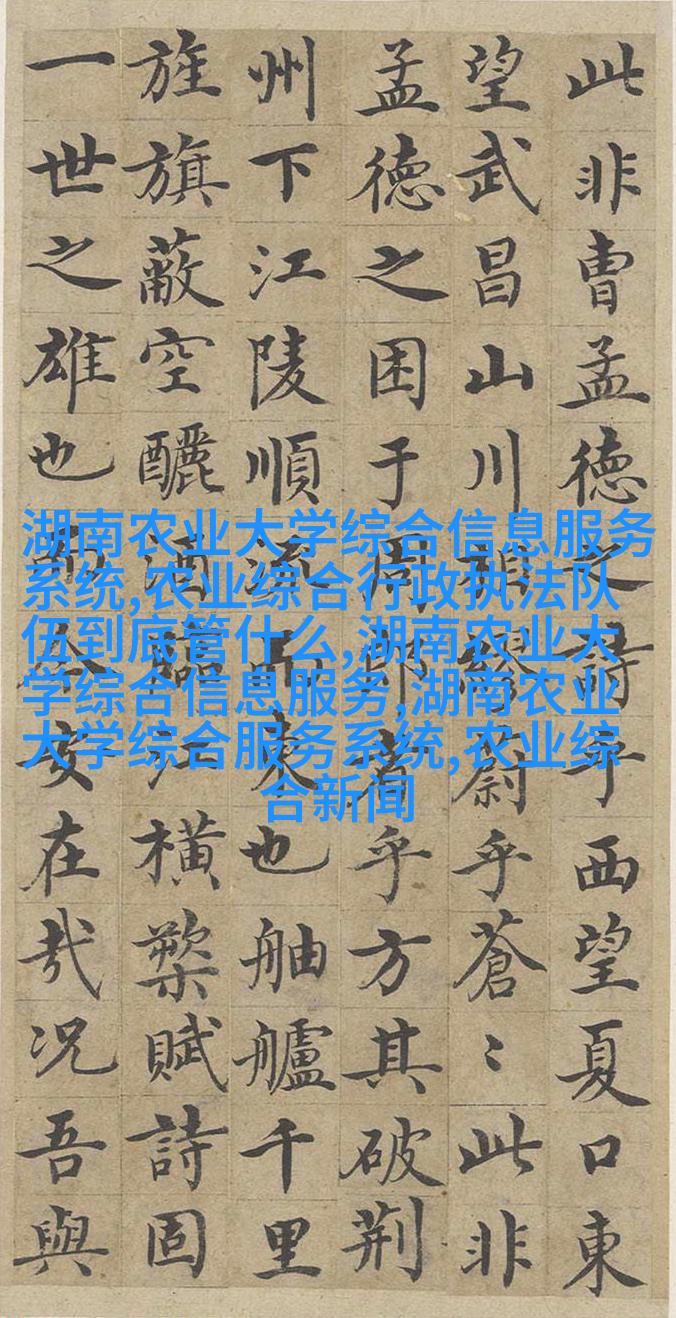 此非曹孟德之詩乎西望夏口東
望武昌山川相繆蔚乎蒼〻此非
孟德之困于周郎者乎方其破荆
州下江陵順流而東也舳艫千里
旌旗蔽空釃酒臨江橫槊賦詩固
一世之雄也而今安在哉况吾與
湖南农业大学综合信息服务
系统,农业综合行政执法队
伍到底管什么,湖南农业大
学综合信息服务,湖南农业
大学综合服务系统,农业综
合新闻